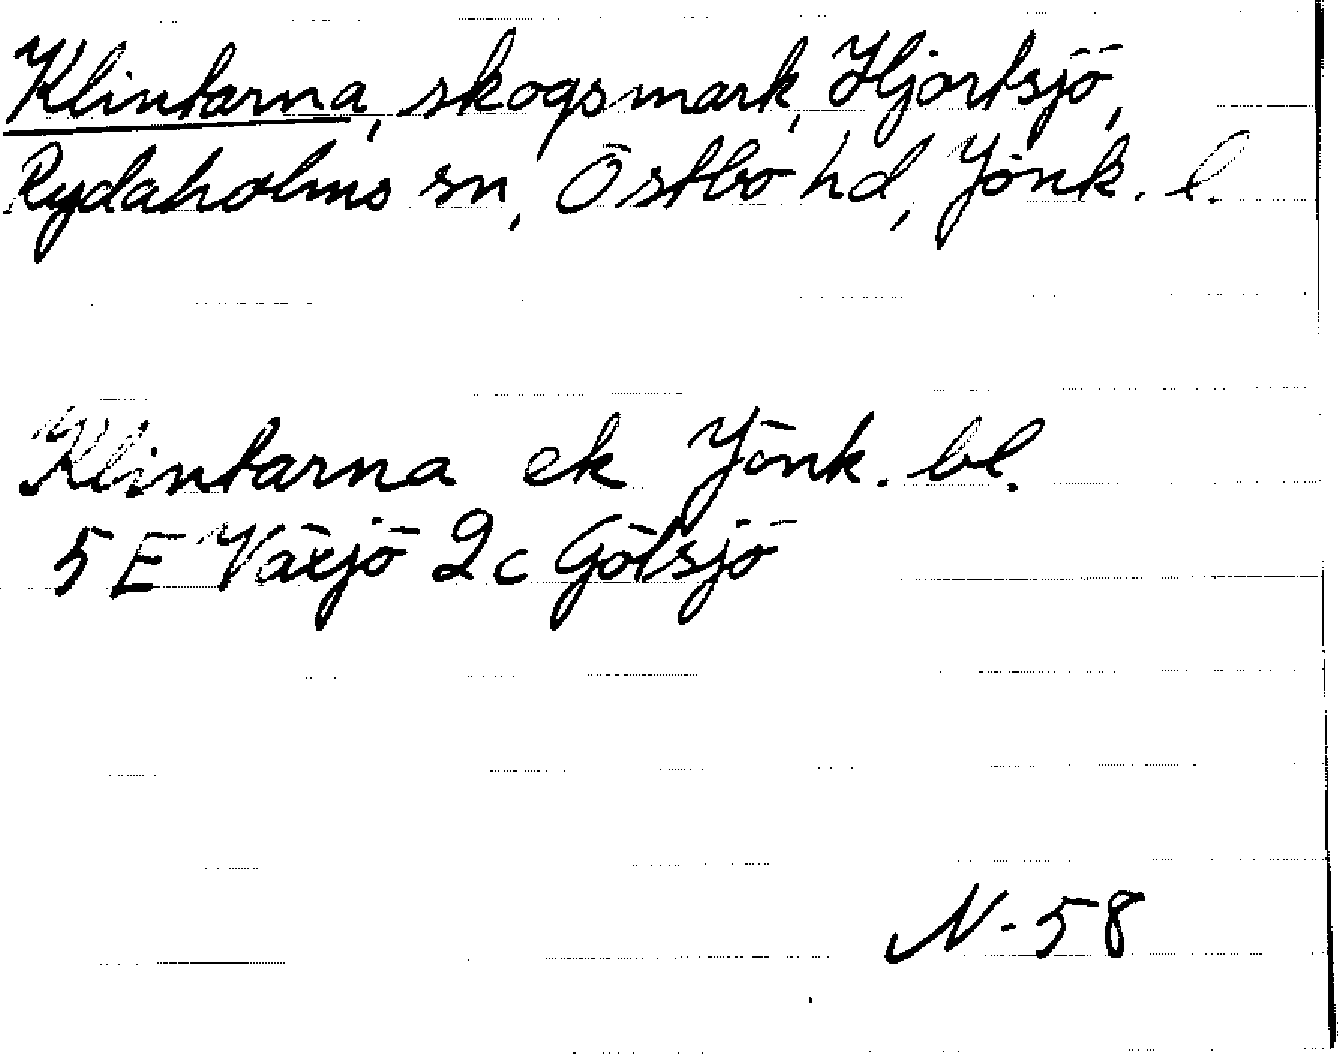 Klintarna, skogsmark, Hjortsjö,
Rydaholms sn, Östbo hd, Jönk. l.
Klintarna ek Jönk. bl.
5 E Växjö 2c Götsjö
N-58